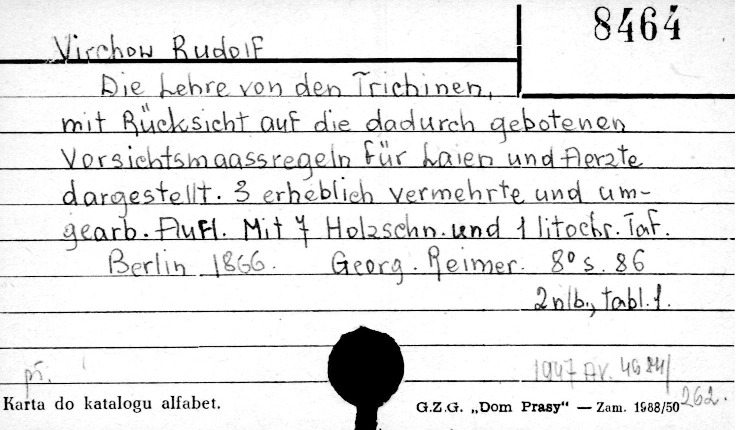 8464
Virchow Rudolf
Die Lehre von den Trichinen,
mit Rücksicht auf die dadurch gebotenen
Vorsichtsmaassregeln für Laien und Aerzte
dargestellt. 3 erheblich vermehrte und um-
gearb. Aufl. Mit 7 Holzschn. und 1 litochr. Taf.
Berlin 1866. Georg. Reimer. 8° s. 86
2 nlb., tabl. 1.
1947 Av.
262.
Karta do katalogu alfabet.
G.Z.G. „Dom Prasy“ — Zam. 1988/50